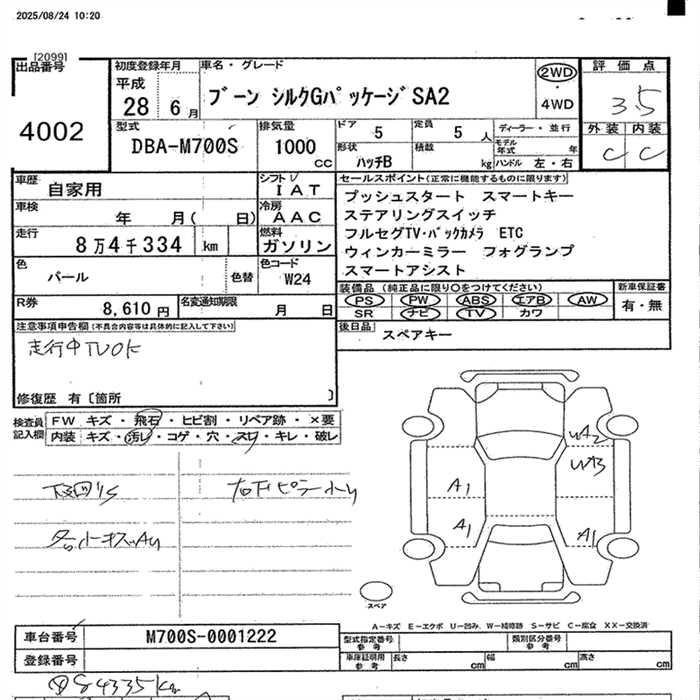 2025/08/24 10:20
[2099]
出品番号
4002
初度登録年月
平成
28 6月
車名・グレード
ブーン シルクGパッケージSA2
2WD
4WD
評価点
3.5
外装 内装
C C
型式
DBA-M700S
排気量
1000
cc
ドア 5
定員 5 人
形状
ハッチB
積数
kg
ディーラー・並行
モデル年式 年
ハンドル 左・右
車歴 自家用
シフト
I A T
車検 年 月( 日)
冷房
A A C
走行 8万4千334 km
燃料
ガソリン
色 パール
色替
色コード
W24
R券 8,610円
名変通知期限 月 日
セールスポイント(正常に機能するものに限ります)
プッシュスタート スマートキー
ステアリングスイッチ
フルセグTV・バックカメラ ETC
ウィンカーミラー フォグランプ
スマートアシスト
装備品 (純正品に限り〇をつけてください)
PS PW ABS エアB AW
SR ナビ TV カワ
新車保証書
有・無
後日品 スペアキー
注意事項申告欄(不具合内容等は具体的に記入して下さい)
走行中TVOK
修復歴 有〔箇所 〕
検査員記入欄
FW キズ・飛石・ヒビ割・リペア跡・×要
内装 キズ・汚レ・コゲ・穴・スリ・キレ・破レ
A1
A1
WA2
WB
A1
スペア
A-キズ E-エクボ U-凹み、W-補修跡 S-サビ C-腐食 XX-交換済
車台番号 M700S-0001222
登録番号
型式指定番号参考
類別区分番号参考
車庫証明用参考
長さ cm
幅 cm
高さ cm
84335km